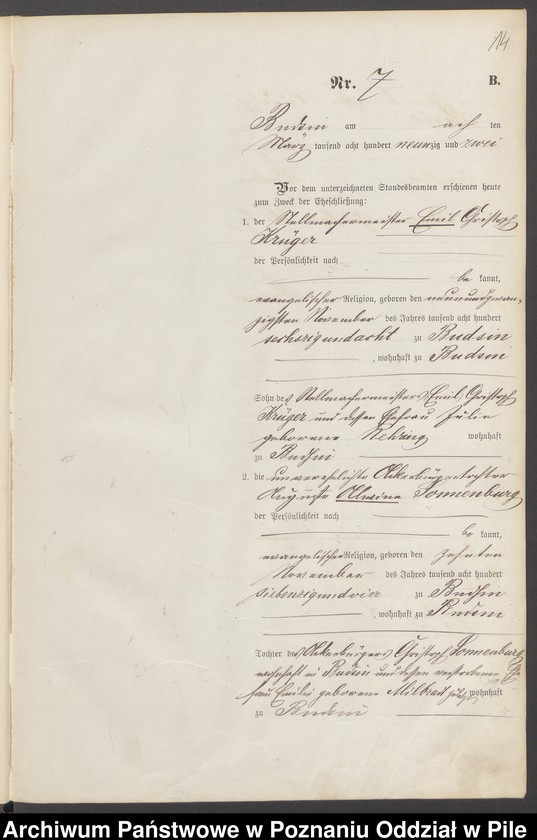 114
Nr. 7 B.
Budsin am acht ten
März tausend acht hundert neunzig und zwei
Vor dem unterzeichneten Standesbeamten erschienen heute
zum Zweck der Eheschließung:
1. der Stellmachermeister Emil Christoph
Krüger
der Persönlichkeit nach
be kannt,
evangelischer Religion, geboren den neunundzwan-
zigsten November des Jahres tausend acht hundert
sechszigundacht zu Budsin
, wohnhaft zu Budsin
Sohn des Stellmachermeisters Emil Christoph
Krüger und dessen Ehefrau Julie
geborene Nehring wohnhaft
zu Budsin
2. die unverehelichte Ackerbürgertochter
Auguste Alwine Sonnenburg
der Persönlichkeit nach
be kannt,
evangelischer Religion, geboren den zehnten
November des Jahres tausend acht hundert
siebenzigundvier zu Budsin
, wohnhaft zu Budsin
Tochter des Ackerbürgers Christoph Sonnenburg
wohnhaft in Budsin und dessen verstorbenen Ehe
frau Emilie geborene Milbrad wohnhaft
zu Budsin
Archiwum Państwowe w Poznaniu Oddział w Pile